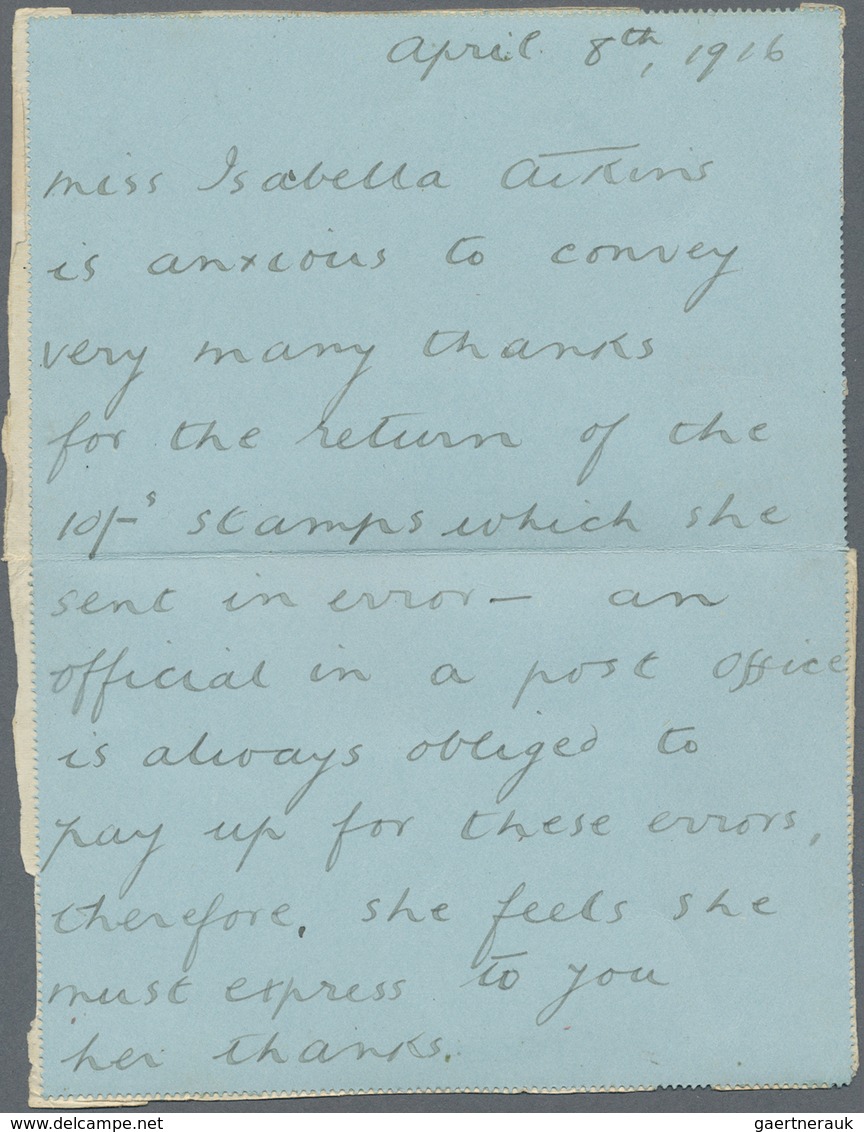 April 8th, 1916
Miss Isabella Aitkins
is anxious to convey
very many thanks
for the return of the
10/-s stamps which she
sent in error — an
official in a post office
is always obliged to
pay up for these errors,
therefore, she feels she
must express to you
her thanks.
www.delcampe.net
gaertnerauk